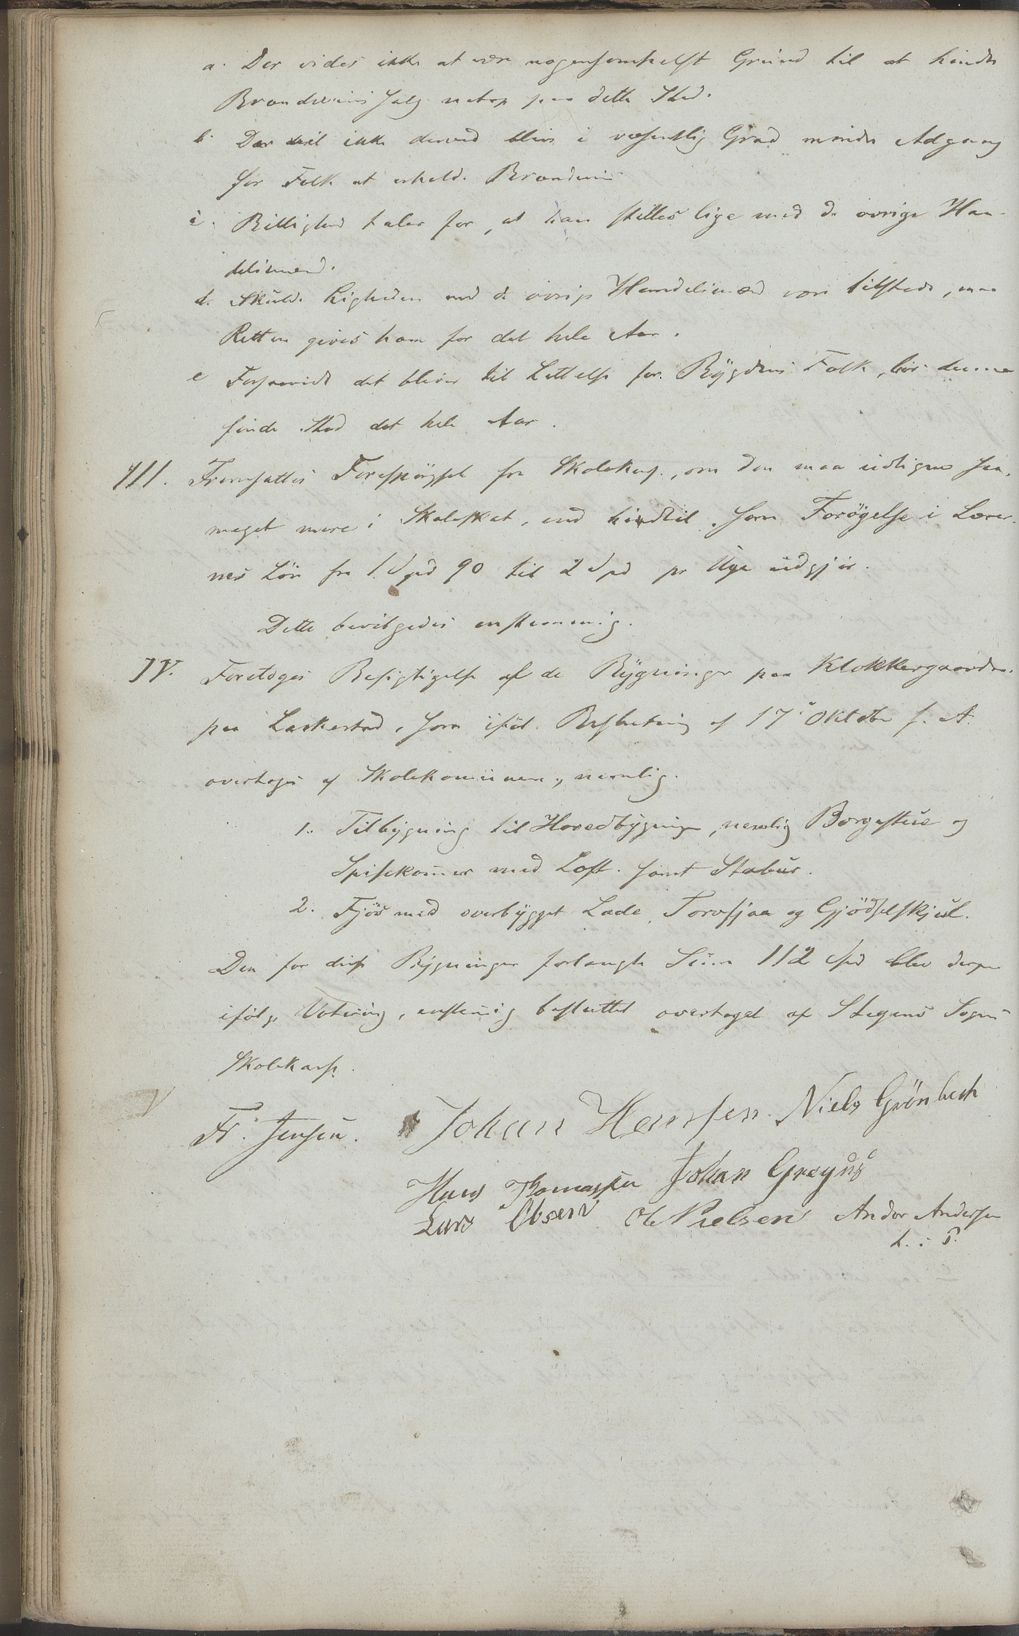 a. Der vides ikke at være nogensomhelst Grund til at hindre
Brændevins Salg netop paa dette Sted.
b. Der vil ikke derved blive i væsentlig Grad mindre Adgang
for Folk at erholde Brændeviin
c. Billighed taler for, at han stilles lige med de øvrige Han-
delsmænd.
d. Skulde Ligheden med de øvrige Handelsmænd være tilstede, maa
Retten gives ham for det hele Aar.
e Forsaavidt det bliver til Lettelse for Bÿgdens Folk, bør denne
finde Sted det hele Aar.
III. Fremsattes Forespørgsel fra Skolekass., om den maa udligne saa
meget mere i Skoleskat, end hidtil, som Forøgelse i Lærer-
nes Løn fra 1 Spd 90 til 2 Spd pr Uge udgjør.
Dette bevilgedes enstemmig.
IV. Foretoges Besigtigelse af de Bÿgninger paa Klokkergaarden
paa Laskestad, som iføl. Beslutning af 17de Oktober f. A.
overtages af Skolekommunen, nemlig.
1. Tilbÿgning til Hovedbÿgningen, nemlig Borgestue og
Spisekam̄er med Loft. samt Stabur.
2. Fjøs med overbÿgget Lade, Torvsjaa og Gjødselskjul.
Den for disse Bÿgninger forlangte Sum 112 Spd blev derpaa
ifølge Votering, enstem̄ig besluttet overtaget af Stegens Sogns
Skolekasse.
Fr. Jensen. Johan Hansen. Niels Grönbech
Hans Thomassen Johan Greguss
Lars Olsen Ole Nielsen Andor Andersen
L. i P.